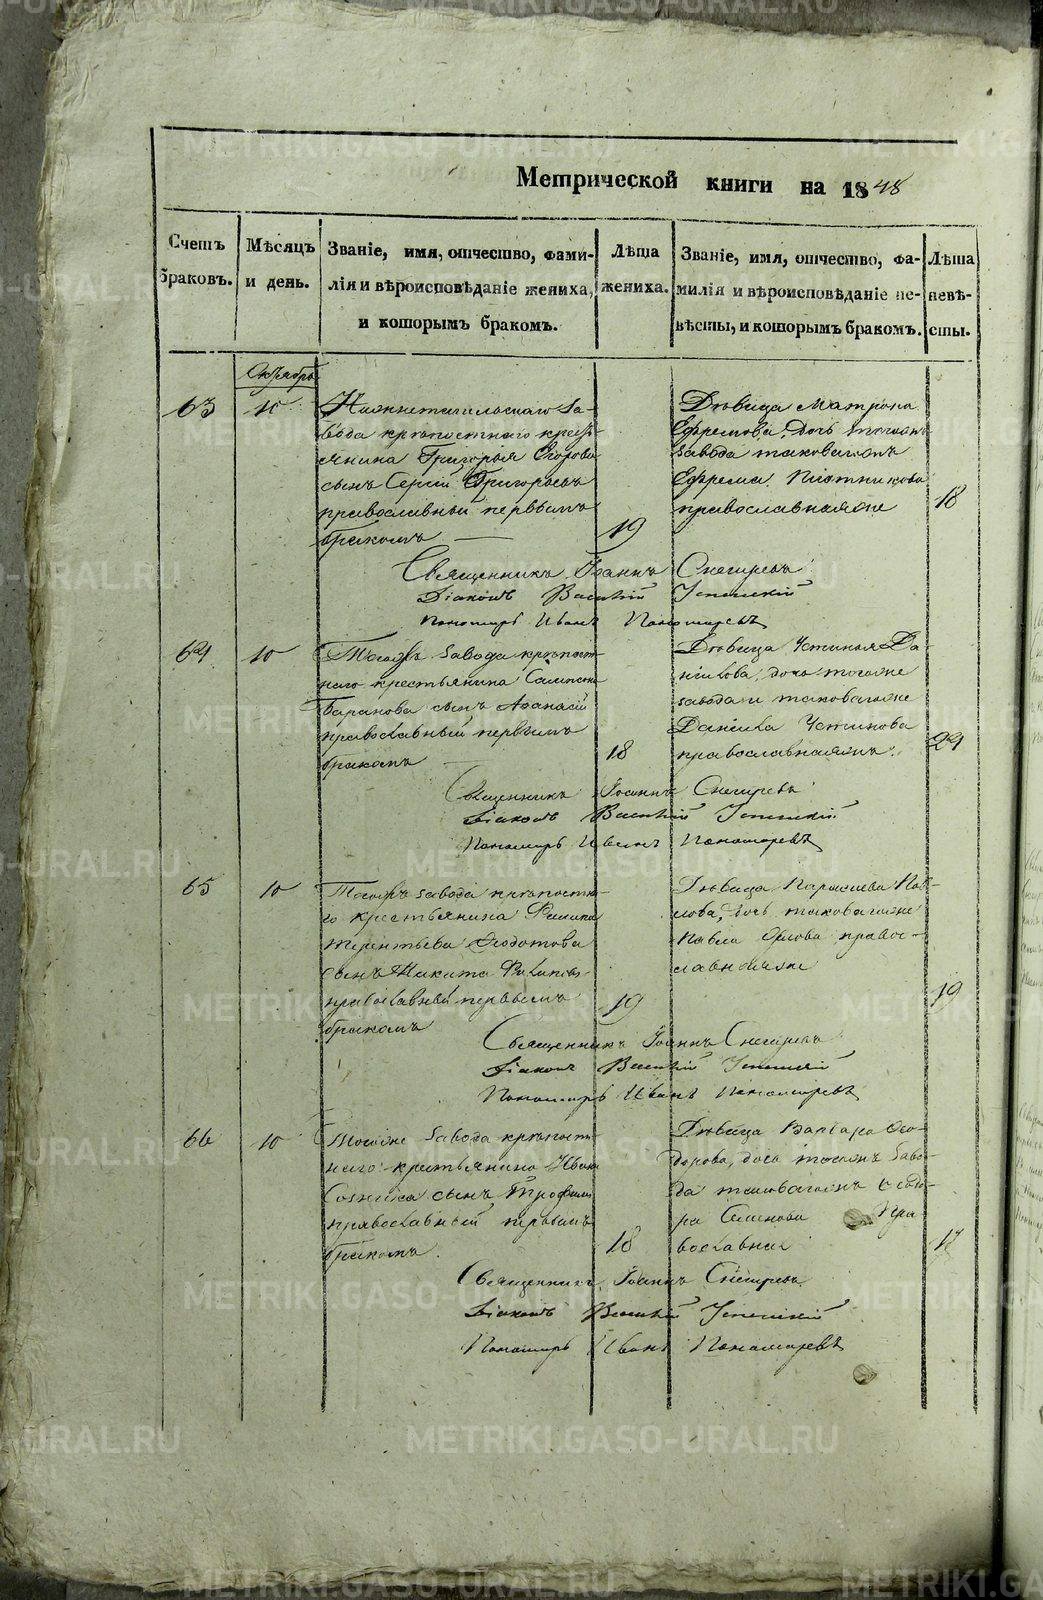 Метрической книги на 1848
Счетъ браковъ.
Мѣсяцъ и день.
Званіе, имя, отчество, фами-
лія и вѣроисповѣданіе жениха,
и которымъ бракомъ.
Лѣта
жениха.
Званіе, имя, отчество, фа-
милія и вѣроисповѣданіе не-
вѣсты, и которымъ бракомъ.
Лѣта
невѣ-
сты.
Октябрь
63
10
Нижнетагильскаго за-
вода крѣпостнаго кресть-
янина Григорья Егорова
сынъ Сергій Григорьевъ
православный первымъ
бракомъ
19
Дѣвица Матрона
Ефремова, дочь
завода таковагожъ
Ефрема
православнаяже
18
Священникъ Іоаннъ Снегиревъ
Діаконъ Василій Успенскій
Пономарь Иванъ Пономаревъ
64
10
Тогожъ завода крѣпост-
наго крестьянина
Баранова сынъ Афанасій
православный первымъ
бракомъ
18
Дѣвица Устинья Да-
нілова, дочь тогоже
завода и таковагоже
Даніила Устинова
православнаяжъ.
24
Священникъ Іоаннъ Снегиревъ
Діаконъ Василій Успенскій
Пономарь Иванъ Пономаревъ
65
10
Тогожъ завода крѣпостна-
го крестьянина Филипа
Терентьева Федотова
сынъ Никита
православный первымъ
бракомъ
19
Дѣвица Парасева Пав-
лова, дочь таковагоже
Павла Орлова правос-
лавнаяже
19
Священникъ Іоаннъ Снегиревъ
Діаконъ Василій Успенскій
Пономарь Иванъ Пономаревъ
66
10
Тогоже завода крѣпост-
наго крестьянина Ивана
сынъ Трофимъ
православный первымъ
бракомъ.
18
Дѣвица Варвара Фео-
дорова, дочь тогожъ заво-
да таковагожъ Феодо-
ра Семенова пра-
вославная
17
Священникъ Іоаннъ Снегиревъ
Діаконъ Василій Успенскій
Пономарь Иванъ Пономаревъ
METRIKI.GASO-URAL.RU